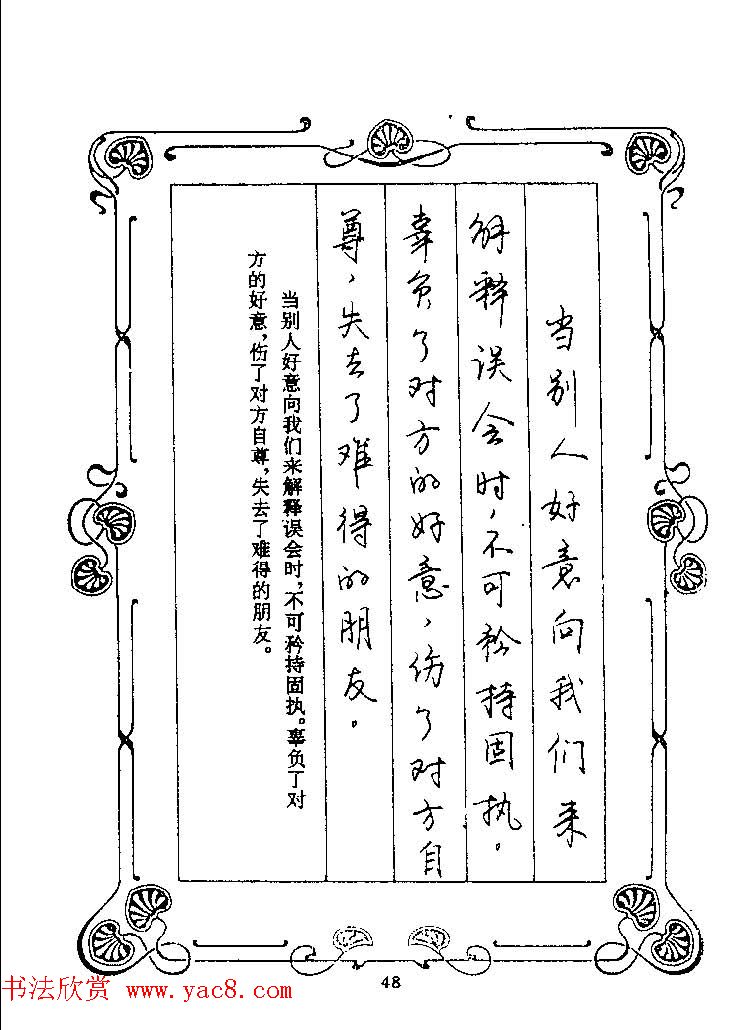 当别人好意向我们来
解释误会时，不可矜持固执。
辜负了对方的好意，伤了对方自
尊，失去了难得的朋友。
当别人好意向我们来解释误会时，不可矜持固执。辜负了对
方的好意，伤了对方自尊，失去了难得的朋友。
48
书法欣赏 www.yac8.com